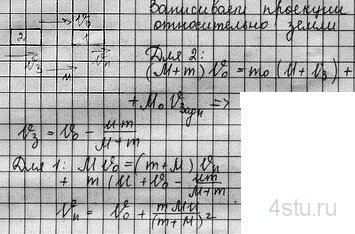 Записываем проекции
относительно земли
v₀
2 1
v₃ u v₀
Для 2:
(M+m) v₀ = m₀ (u + v₃) +
+ M₀ v₃задн =>
v₃ = v₀ - um/(M+m)
Для 1: M v₀ = (m+M) vₙ
+ m (u + v₀ - um/(M+m)
vₙ = v₀ + mMu/(m+M)²
4stu.ru